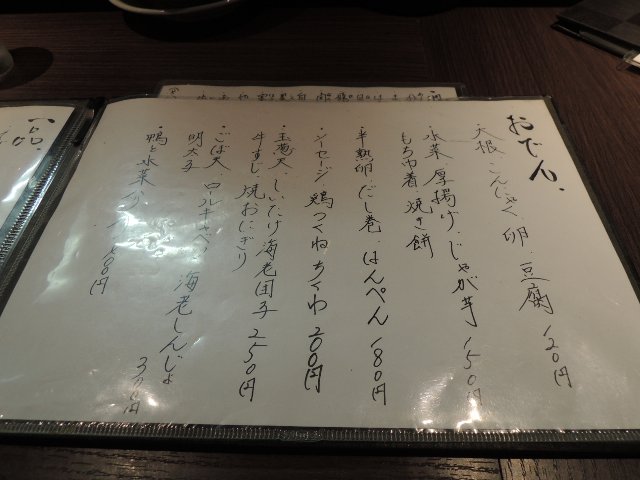 おでん
・大根・こんにゃく・卵・豆腐 120円
・水菜・厚揚げ・じゃが芋 150円
もち巾着・焼き餅
・半熟卵・だし巻・はんぺん 180円
・ソーセージ・鶏つくね・ちくわ 200円
・玉葱天・しいたけ・海老団子 250円
牛すじ・焼おにぎり
・ごぼ天・ロールキャベツ・海老しんじょ
明太子
・鴨と水菜
一品